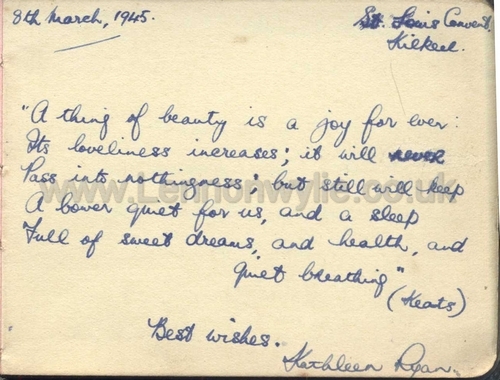 8th March, 1945.
St. Louis Convent,
Kilkeel.
"A thing of beauty is a joy for ever:
Its loveliness increases; it will never
Pass into nothingness; but still will keep
A bower quiet for us, and a sleep
Full of sweet dreams, and health, and
quiet breathing"
(Keats)
Best wishes.
Kathleen Ryan.
www.Lennonwylie.co.uk